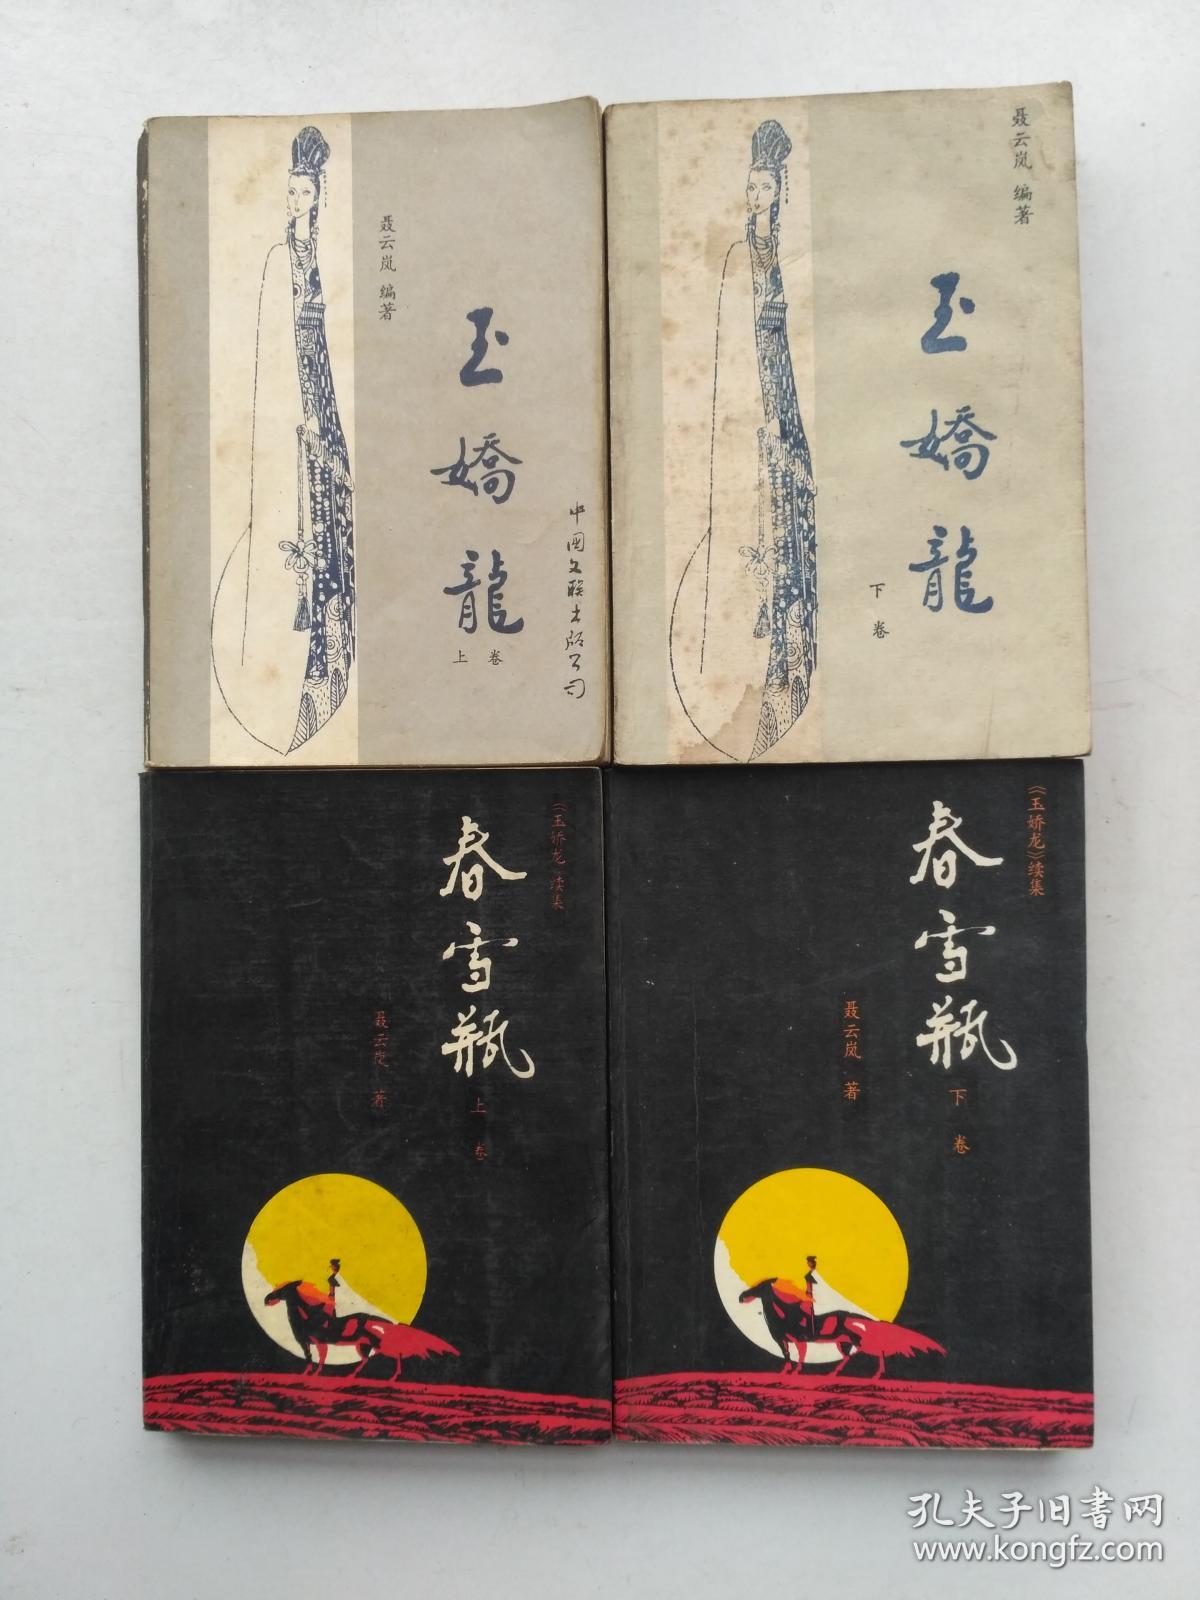 聂云岚 编著
玉嬌龍
上卷
中国文联出版公司
聂云岚 编著
玉嬌龍
下卷
《玉娇龙》续集
春雪瓶
聂云岚 著
上卷
《玉娇龙》续集
春雪瓶
聂云岚 著
下卷
孔夫子旧书网
www.kongfz.com